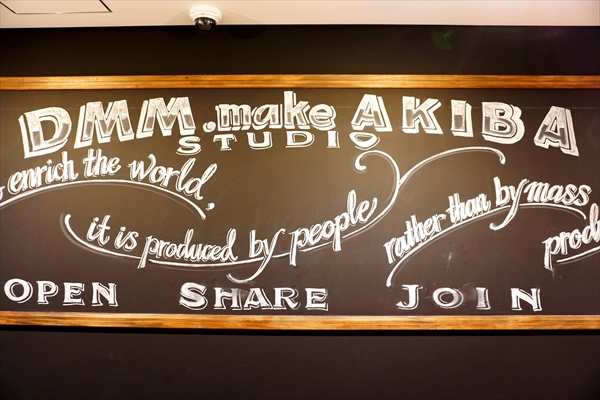 DMM.make AKIBA
STUDIO
enrich the world,
it is produced by people
rather than by mass
OPEN SHARE JOIN